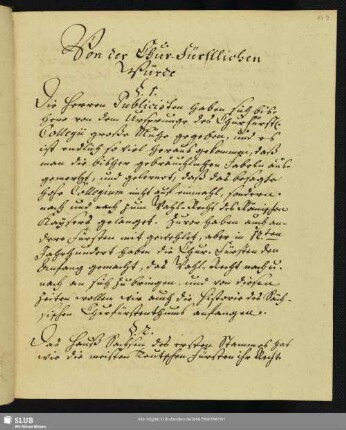 Von der Chur-Fürstlichen
Würde
§. 1.
Die Herren Publicisten haben sich biß-
hero von dem Ursprunge des Churfürstl.
Collegii große Mühe gegeben, und es
ist endlich so viel heraus gekommen, daß
man die bißher gebräuchlichen Fabeln aus-
gemerzet, und gelernet, daß das besagte
hohe Collegium nicht auf einmahl, sondern
nach und nach zum Wahl-Recht des Römischen
Kaysers gelanget. Zuvor haben auch an-
dere Fürsten mit gewehlet, aber in 12.ten
Jahrhundert haben die Chur-Fürsten den
Anfang gemacht, das Wahl-Recht nach u.
nach an sich zu bringen, und von diesen
Zeiten wollen wir auch die Historie des Säch-
sischen Churfürstenthums anfangen.
§. 2.
Das Hauß Sachsen des ersten Stammes hat
wie die meisten Teutschen Fürsten ihr Recht
SLUB
Wir führen Wissen.